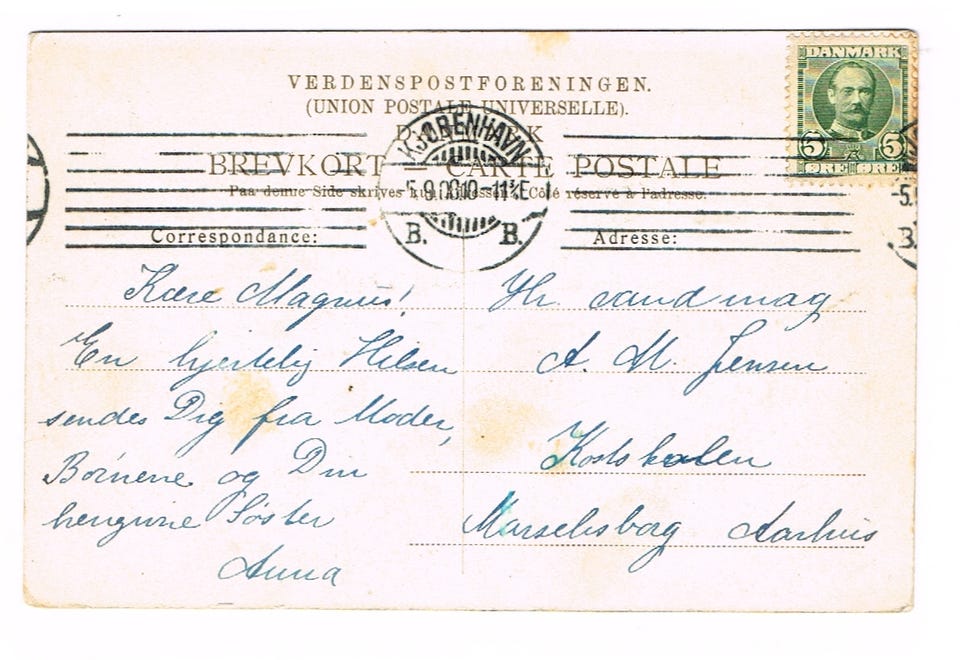 VERDENSPOSTFORENINGEN.
(UNION POSTALE UNIVERSELLE).
DANMARK
BREVKORT — CARTE POSTALE
Paa denne Side skrives kun Adressen. Côté réservé à l'adresse.
DANMARK
5 5
ØRE ØRE
KJØBENHAVN
5.9.08 10-11¾E
B. B.
Correspondance:
Kære Magnus!
En hjertelig Hilsen
sendes Dig fra Moder,
Börnene og Din
hengivne Søster
Anna
Adresse:
Hr. cand mag
A. M. Jensen
Kostskolen
Marselisborg Aarhus